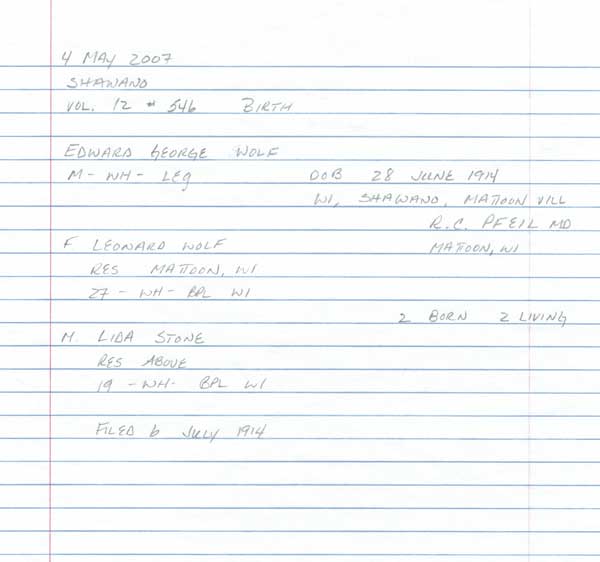 4 MAY 2007
SHAWANO
VOL. 12 # 546 BIRTH
EDWARD GEORGE WOLF
M - WH - LEG DOB 28 JUNE 1914
WI, SHAWANO, MATTOON VILL
R.C. PFEIL MD
F LEONARD WOLF MATTOON, WI
RES MATTOON, WI
27 - WH - BPL WI
2 BORN 2 LIVING
M. LIDA STONE
RES ABOVE
19 - WH - BPL WI
FILED 6 JULY 1914